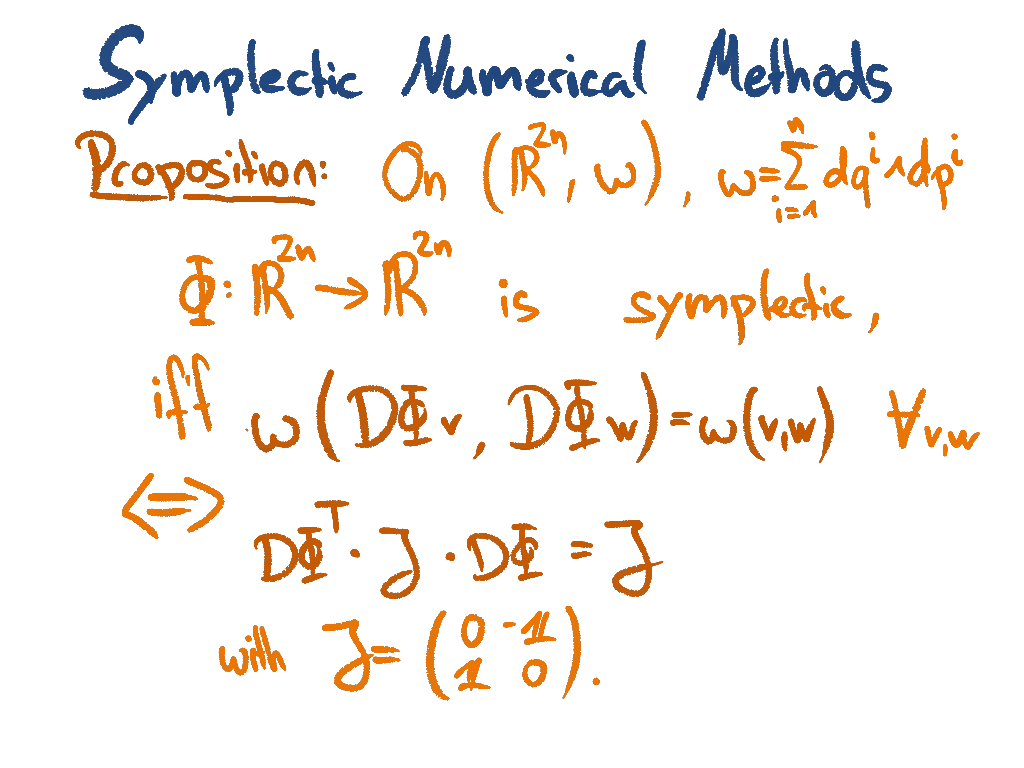 Symplectic Numerical Methods
Proposition: On (ℝ²ⁿ, ω), ω=∑ⁿᵢ₌₁ dqⁱ∧dpⁱ
Φ: ℝ²ⁿ → ℝ²ⁿ is symplectic,
iff ω(DΦv, DΦw)=ω(v,w) ∀v,w
⟺
DΦᵀ · J · DΦ = J
with J= (0 -𝟙
𝟙 0).